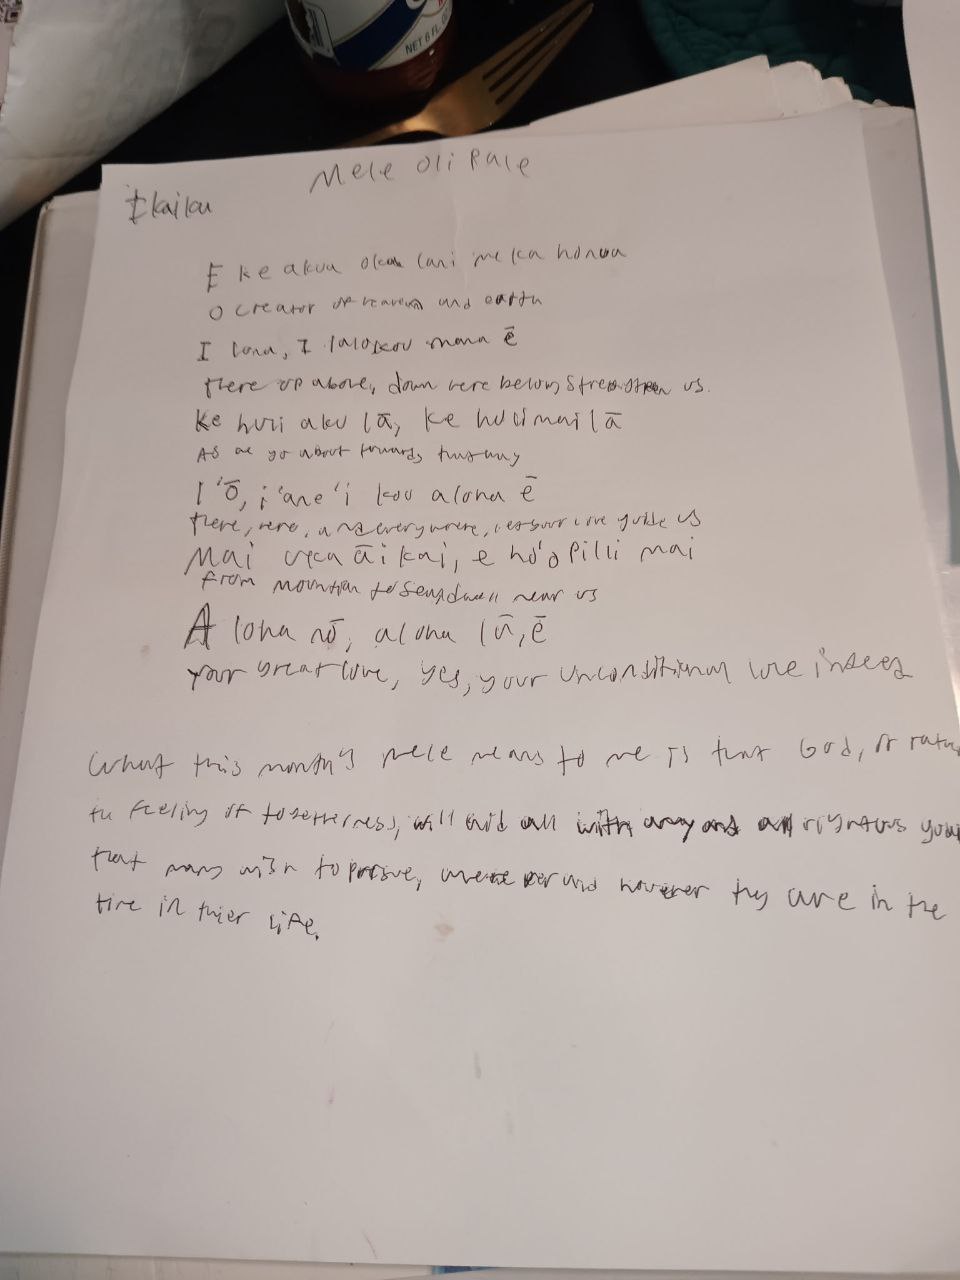 NET 6 FL
Mele Oli Pule
Ikaika
E ke akua oka lani me ka honua
O creator of heaven and earth
I luna, I lalo kou mana ē
there up above, down here below strengthen us.
Ke huli aku lā, ke huli mai lā
As we go about towards
I 'ō, i 'ane 'i kou aloha ē
there, here, and everywhere, let your love guide us
Mai uka ā i kai, e ho'o pilli mai
from mountain to sea, dwell near us
Aloha nō, aloha lā, ē
your great love, yes, your unconditional love indeed
What this month's mele means to me is that God, or rathe
the feeling of togetherness, will aid all with any and all rightous goal
that many wish to , where ever and however they are in the
time in thier life.